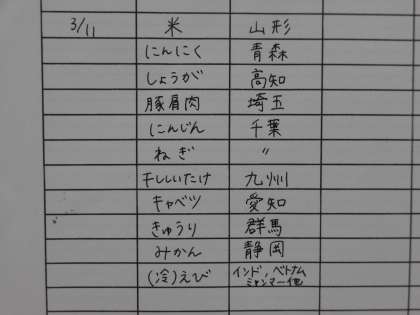 3/11 米 山形
にんにく 青森
しょうが 高知
豚肩肉 埼玉
にんじん 千葉
ねぎ 〃
干ししいたけ 九州
キャベツ 愛知
きゅうり 群馬
みかん 静岡
(冷)えび インド,ベトナム
ミャンマー他